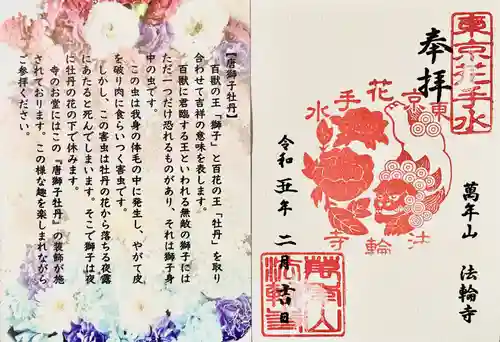 【唐獅子牡丹】
百獣の王「獅子」と百花の王「牡丹」を取り
合わせて吉祥の意味を表します。
百獣に君臨する王といわれる無敵の獅子には
ただ一つだけ恐れるものがあり、それは獅子身
中の虫です。
この虫は我身の体毛の中に発生し、やがて皮
を破り肉に食らいつく害虫です。
しかし、この害虫は牡丹の花から落ちる夜露
にあたると死んでしまいます。そこで獅子は夜
に牡丹の花の下で休みます。
寺のお堂にはこの『唐獅子牡丹』の装飾が施
されております。この様な趣を楽しまれながら
ご参拝ください。
東京花手水
奉拝
東京花手水
法輪寺
萬年山 法輪寺
令和五年 二月